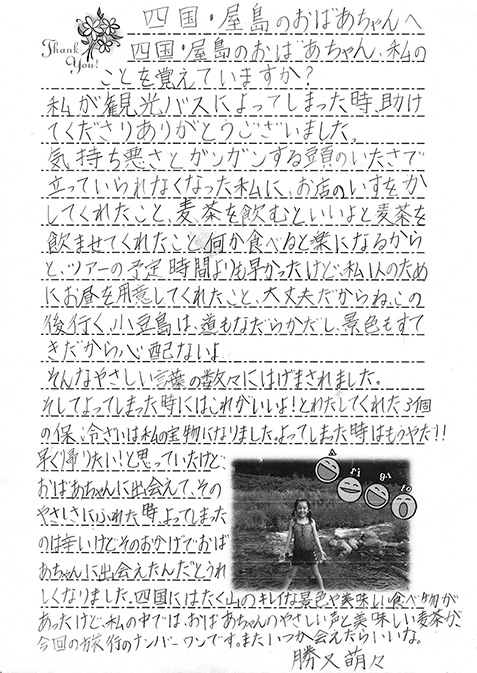 四国・屋島のおばあちゃんへ
Thank You!
四国・屋島のおばあちゃん、私の
ことを覚えていますか？
私が観光バスによってしまった時、助け
てくださりありがとうございました。
気持ち悪さとガンガンする頭のいたさで
立っていられなくなった私に、お店のいすをか
してくれたこと、麦茶を飲むといいよと麦茶を
飲ませてくれたこと、何か食べると楽になるから
と、ツアーの予定時間よりも早かったけど、私1人のため
にお昼を用意してくれたこと、大丈夫だからね、この
後行く、小豆島は、道もなだらかだし、景色もすて
きだから心配ないよ
そんなやさしい言葉の数々にはげまされました。
そしてよってしまった時にはこれがいいよ！とわたしてくれた3個
の保冷ざいは私の宝物になりました。よってしまった時はもうやだ！！
早く帰りたい！と思っていたけど、
おばあちゃんに出会えて、その
やさしさにふれた時、よってしまった
のは辛いけどそのおかげでおば
あちゃんに出会えたんだとうれ
しくなりました。四国にはたく山のキレイな景色や美味しい食べ物が
あったけど、私の中では、おばあちゃんのやさしい声と美味しい麦茶が、
今回の旅行のナンバーワンです。またいつか会えたらいいな。
勝又萌々